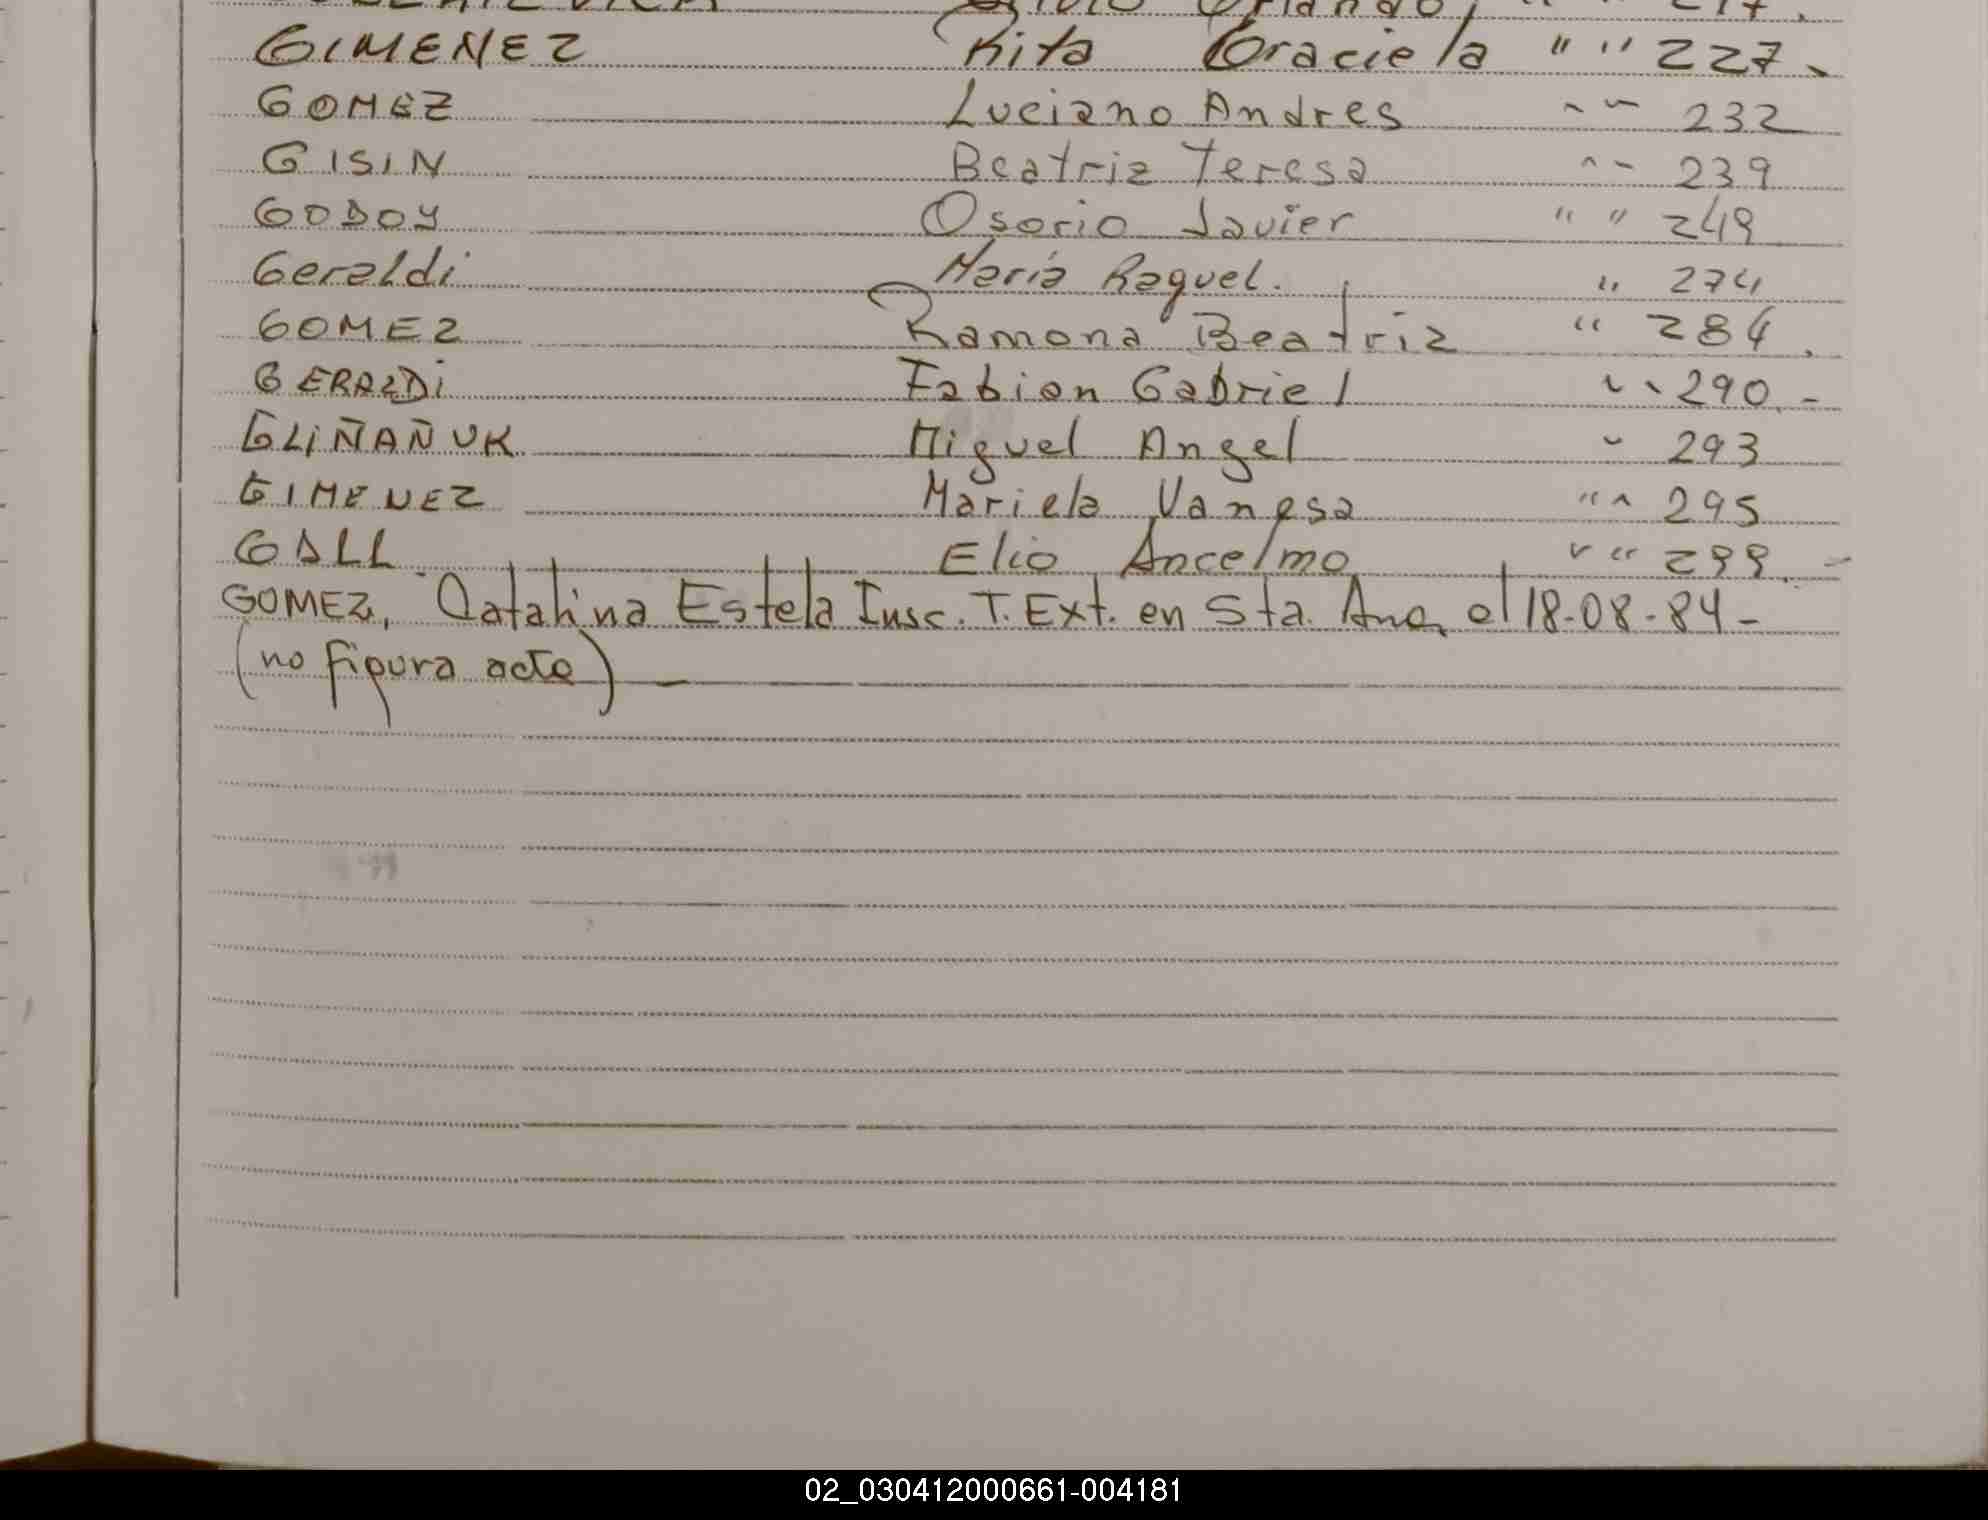 Orlando, " " 217.
GIMENEZ Rita Graciela " " 227.
GOMEZ Luciano Andres " " 232
GISIN Beatriz Teresa " " 239
GODOY Osorio Javier " " 249
Geraldi María Raquel. " 274
GOMEZ Ramona Beatriz " 284.
GERALDi Fabian Gabriel " " 290.-
GLiÑAÑUK Miguel Angel " 293
GIMENEZ Mariela Vanesa " " 295
GALL Elio Ancelmo " " 299.-
GOMEZ, Catalina Estela Insc. T. Ext. en Sta. Ana, el 18-08-84-
(no figura acta)-
02_030412000661-004181